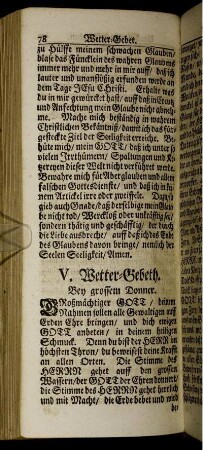 78 Wetter-Gebet.
zu Hülffe meinem schwachen Glauben/
blase das Füncklein des wahren Glaubens
immer mehr und mehr in mir auff/ daß ich
lauter und unanstößig erfunden werde an
dem Tage JEsu Christi. Erhalte was
du in mir gewürcket hast/ auff daß in Creutz
und Anfechtung mein Glaube nicht abneh-
me. Mache mich beständig in wahrem
Christlichen Bekäntniß/ damit ich das für-
gesteckte Ziel der Seeligkeit erreiche. Be-
hüte mich/ mein GOTT/ daß ich unter so
vielen Irrthümern/ Spaltungen und Ke-
tzereyen dieser Welt nicht verführet werde.
Bewahre mich für Aberglauben und allem
falschen Gottesdienste/ und daß ich in kei-
nem Articul irre oder zweiffele. Darzu
gieb auch Gnade/ daß derselbige mein Glau-
be nicht todt/ Wercklos oder unkräfftig sey/
sondern thätig und geschäfftig/ der durch
die Liebe ausbreche/ auff daß ich das Ende
des Glaubens davon bringe/ nemlich der
Seelen Seeligkeit/ Amen.
V. Wetter-Gebeth.
Bey grossem Donner.
GRoßmächtiger GOTT/ deinem
Nahmen sollen alle Gewaltigen auff
Erden Ehre bringen/ und dich ewigen
GOTT anbeten/ in deinem heiligen
Schmuck. Denn du bist der HERR im
höchsten Thron/ du beweisest deine Krafft
an allen Orten. Die Stimme des
HERRN gehet auff den grossen
Wassern/ der GOTT der Ehren donnert/
die Stimme des HERRN gehet herrlich
und mit Macht/ die Erde bebet und wird